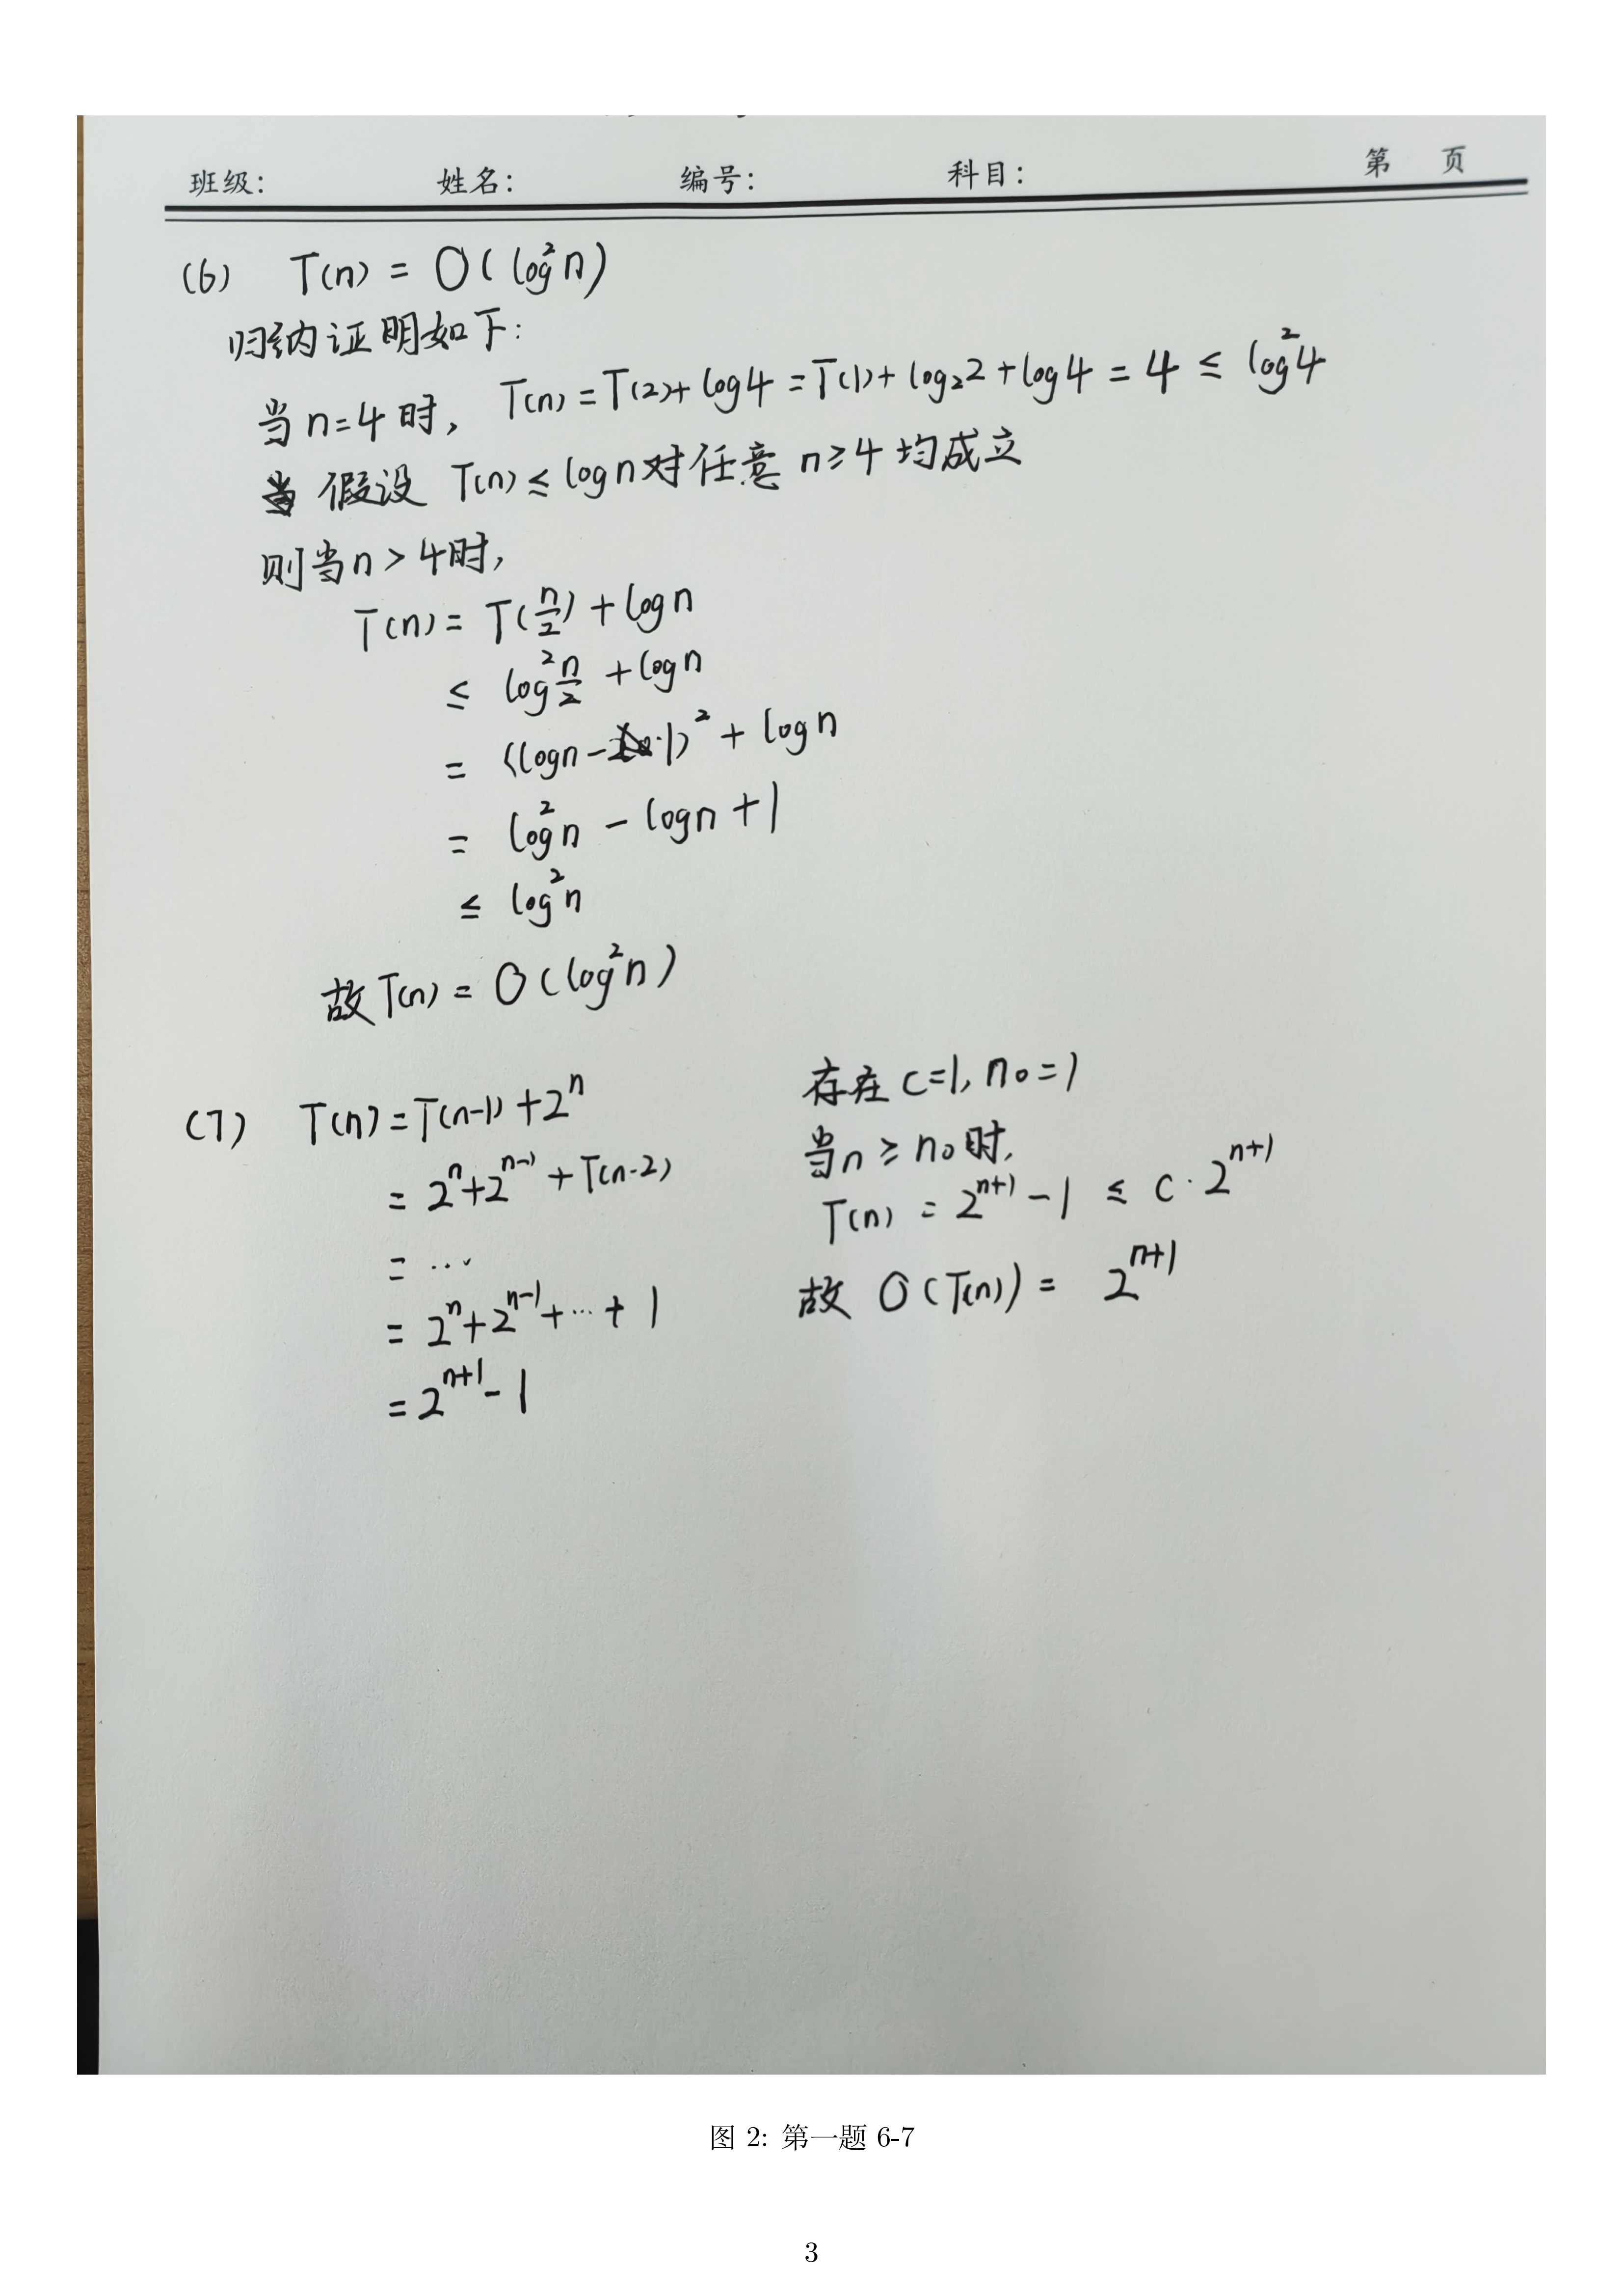 班级: 姓名: 编号: 科目: 第 页
(6) T(n) = O(log²n)
归纳证明如下:
当n=4时, T(n) = T(2)+log4 = T(1)+log₂2+log4 = 4 ≤ log²4
假设 T(n) ≤ logn对任意 n≥4 均成立
则当n>4时,
T(n) = T(n/2) + logn
≤ log²n/2 + logn
= (logn-1)² + logn
= log²n - logn + 1
≤ log²n
故T(n) = O(log²n)
(7) T(n) = T(n-1) + 2ⁿ
= 2ⁿ+2ⁿ⁻¹+T(n-2)
= ...
= 2ⁿ+2ⁿ⁻¹+...+1
= 2ⁿ⁺¹-1
存在 c=1, n₀=1
当n ≥ n₀时,
T(n) = 2ⁿ⁺¹-1 ≤ c·2ⁿ⁺¹
故 O(T(n)) = 2ⁿ⁺¹
图 2: 第一题 6-7
3